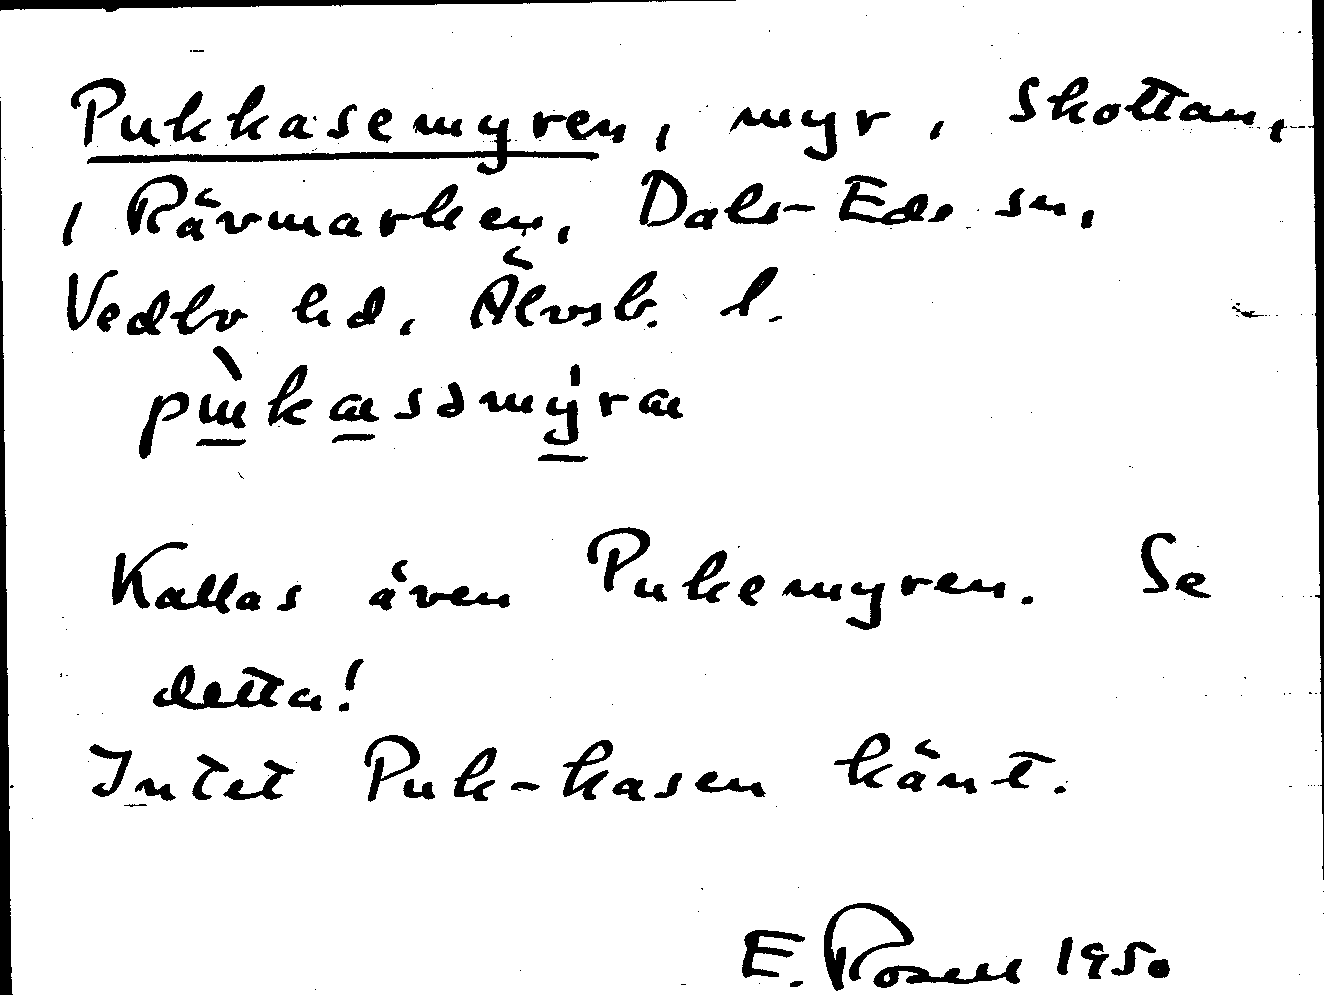 Pukkasemyren, myr, Skottan,
i Rävmarken, Dals-Eds sn,
Vedbo hd, Älvsb. l.
Kallas även Pukemyren. Se
detta!
Intet Puk-kasen känt.
E. Rosell 1950